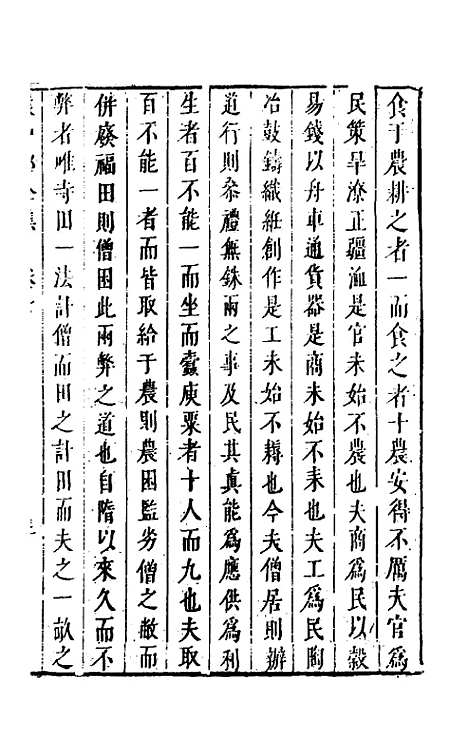 食于農耕之者一而食之者十農安得不厲夫官爲
民策旱潦正疆洫是官未始不農也夫商爲民以穀
易錢以舟車通貨器是商未始不耒也夫工爲民陶
冶鼓鑄織紝創作是工未始不耨也今夫僧居則辦
道行則叅禮無銖兩之事及民其眞能爲應供爲利
生者百不能一而坐而蠹庾粟者十人而九也夫取
百不能一者而皆取給于農則農困監劣僧之敝而
併廢福田則僧困此兩弊之道也自隋以來久而不
弊者唯寺田一法計僧而田之計田而夫之一畝之